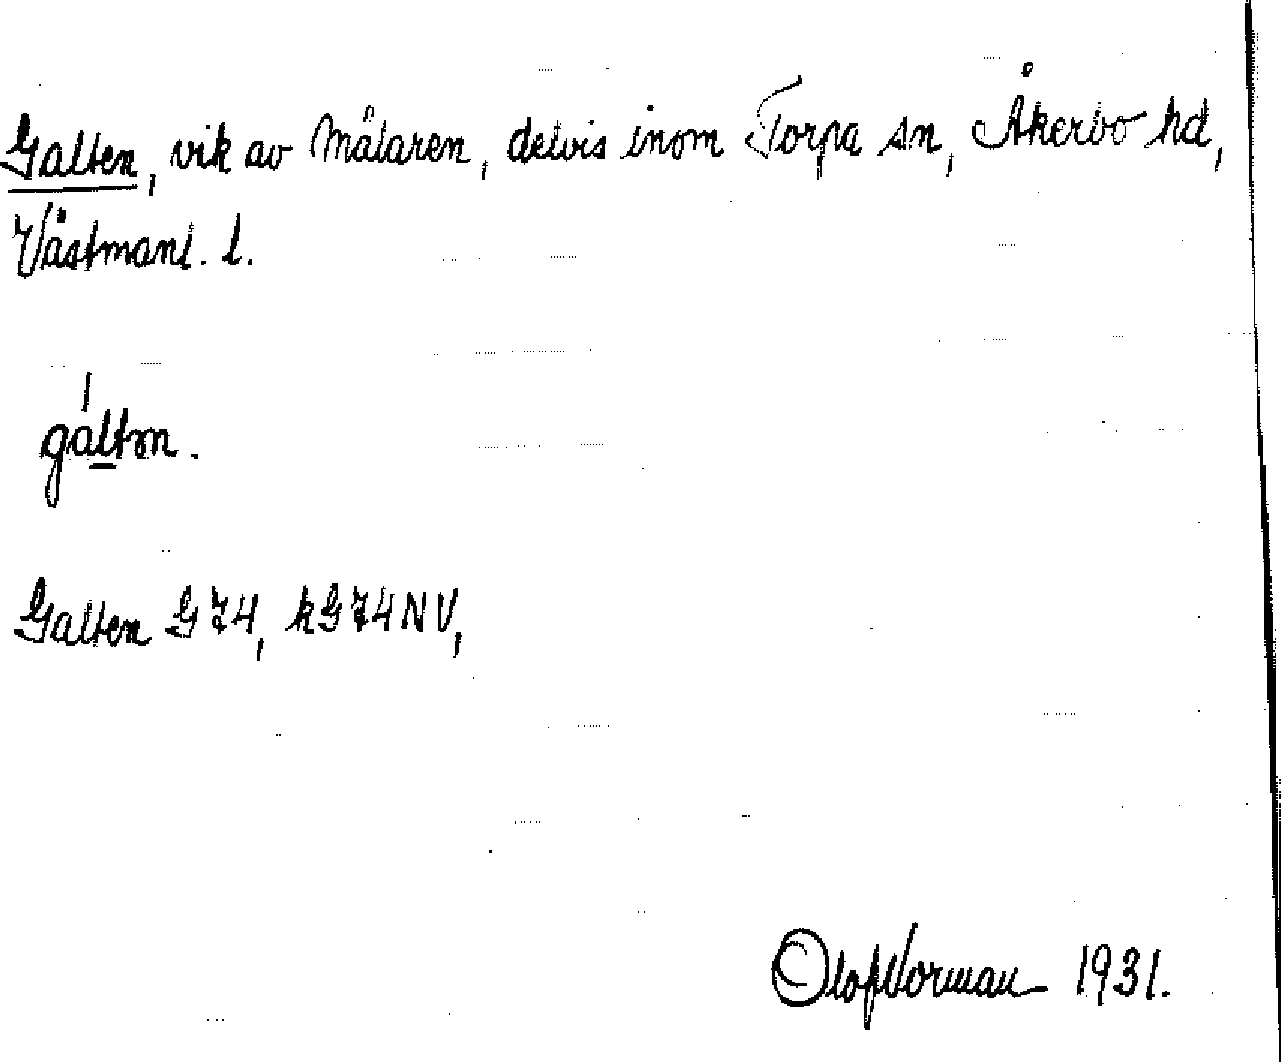 Galten, vik av Mälaren, delvis inom Torpa sn, Åkerbo hd,
Västmanl. l.
gáltn.
Galten G74, kG74NV,
Olof Norman 1931.